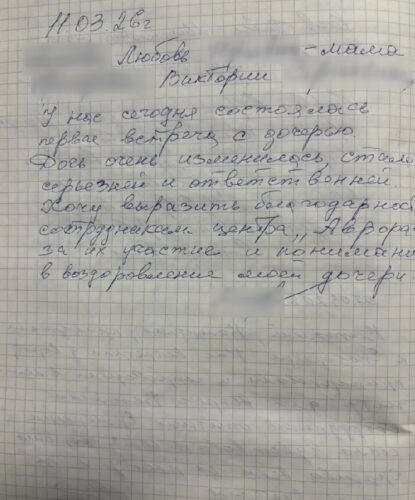 11.03.26г
Любовь - мама
Виктории
У нас сегодня состоялась
первая встреча с дочерью.
Дочь очень изменилась, стала
серьезней и ответственней
Хочу выразить благодарнос
сотрудникам центра „Аврора"
за их участие и понимани
в воздоровления моей дочери